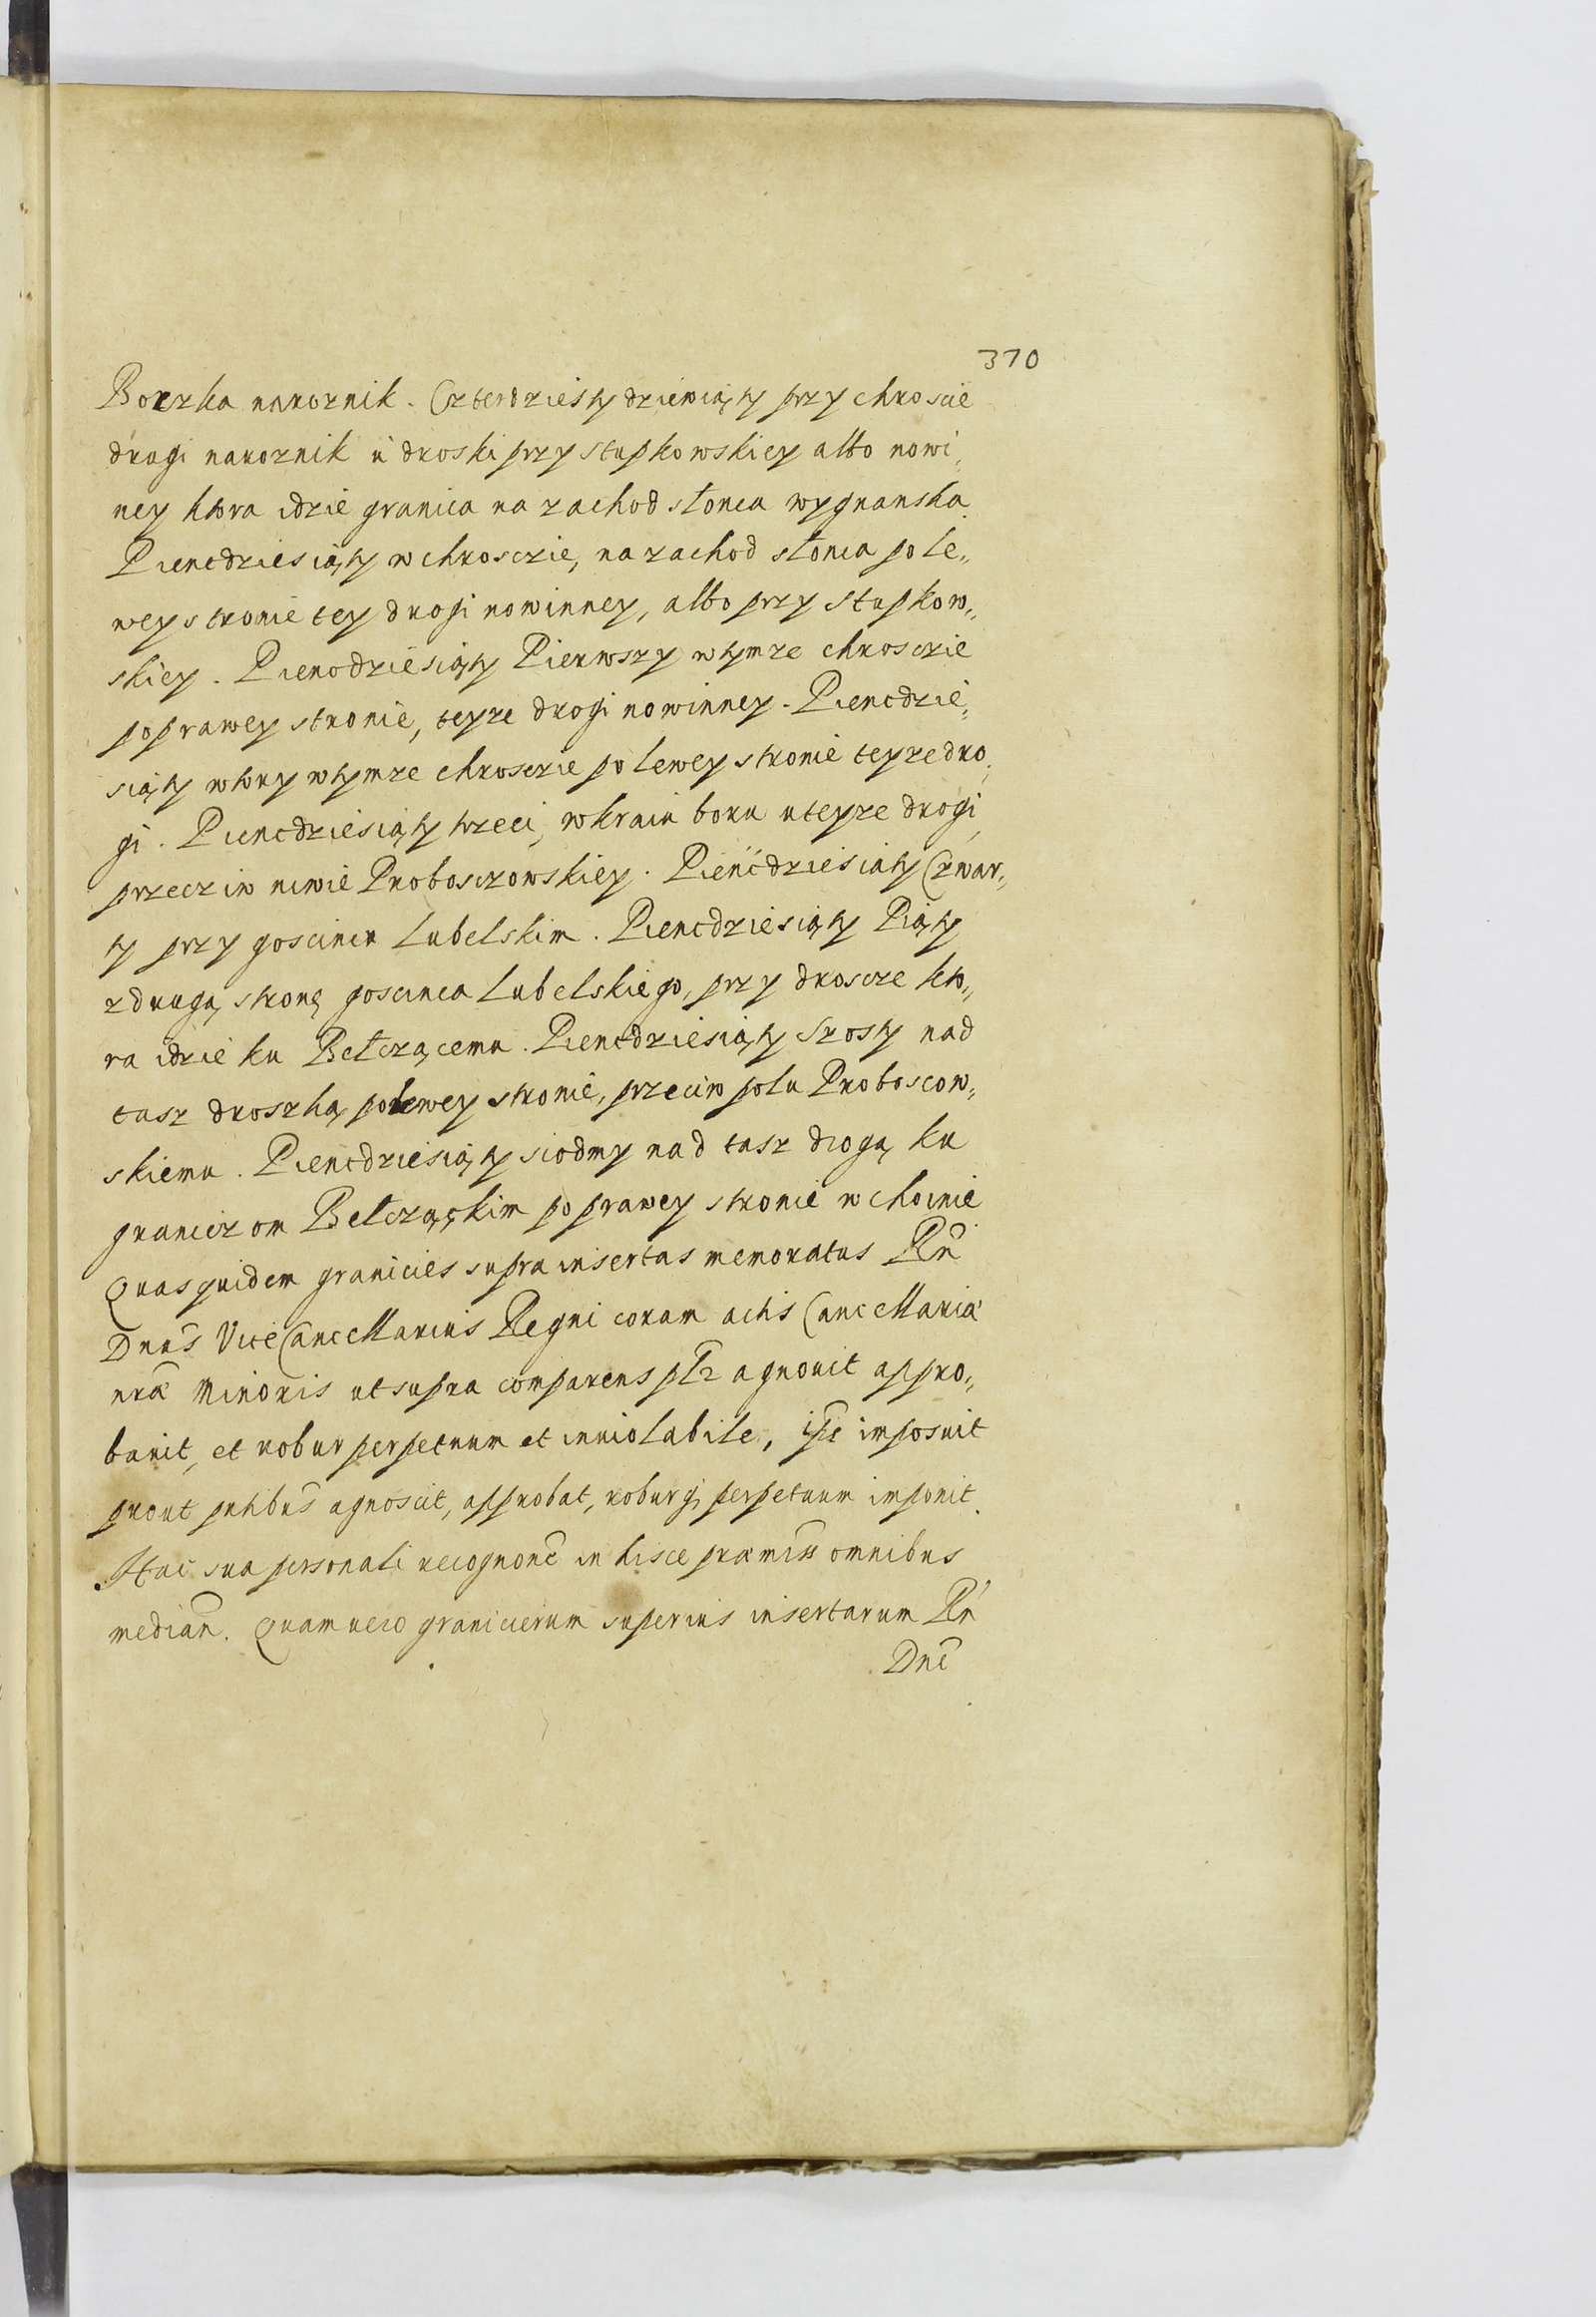 370
Borzka naroznik. Czterdziesty dziewiąty przy chroscie
drugi naroznik u droski przystupkowskiey albo nowi„
ney ktora idzie granica na zachod słonca wygnanska
Piencdziesiąty w chrosczie, na zachod słonca po le„
wey stronie tey drogi nowinney, albo przystupkow„
skiey. Piencdziesiąty Pierwszy w tymze chrosczie
po prawey stronie, teyze drogi nowinney. Piencdzie„
siąty wtory w tymze chrosczie po lewey stronie teyze dro„
gi. Piencdziesiąty trzeci, w kraiu boru u teyze drogi
przecziw niwie Proboszczowskiey. Pięncdziesiąty Czwar„
ty przy goscincu Lubelskim. Piencdziesiąty Piąty
z drugą stronę goscinca Lubelskiego, przy droscze kto„
ra idzie ku Bełczącemu. Piencdziesiąty Szosty nad
tasz droszką po lewey stronie, przeciw polu Proboscow„
skiemu. Piencdziesiąty siodmy nad tasz drogą ku
granicz om Bełcząckim po prawey stronie w choinie
Quasquidem granicies supra insertas memoratus Rn̄
Dnūs Vice Cancellarius Regni coram actis Cancellariæ
nræ Minoris ut supra comparens plr agnouit appro„
bauit, et robur perpetuum et inuiolabile, ipse imposuit
prout pntibūs agnoscit, approbat, roburq; perpetuum imponit.
Hac sua personali recognone in hisce præmiss omnibus
median̄. Quam uero granicierum superius insertarum Rn̄
Dnē